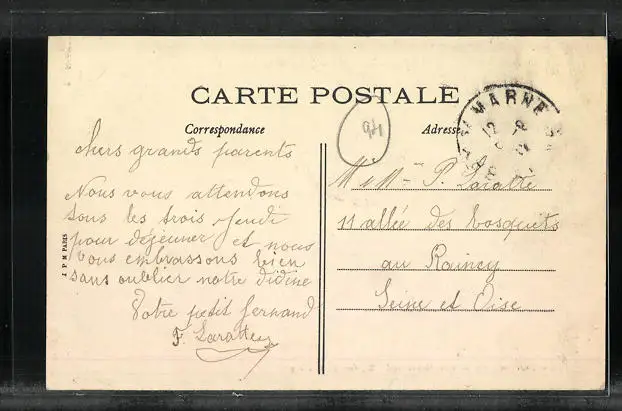 CARTE POSTALE
Correspondance
Adresse
94
MARNE
Chers grands parents
Nous vous attendons
tous les trois Jeudi
pour déjeuner et nous
vous embrassons bien
sans oublier notre Didine
Votre petit Fernand
F. Laratte
M et Mme P. Laratte
11 allée des bosquets
au Raincy
Seine et Oise
J P M PARIS